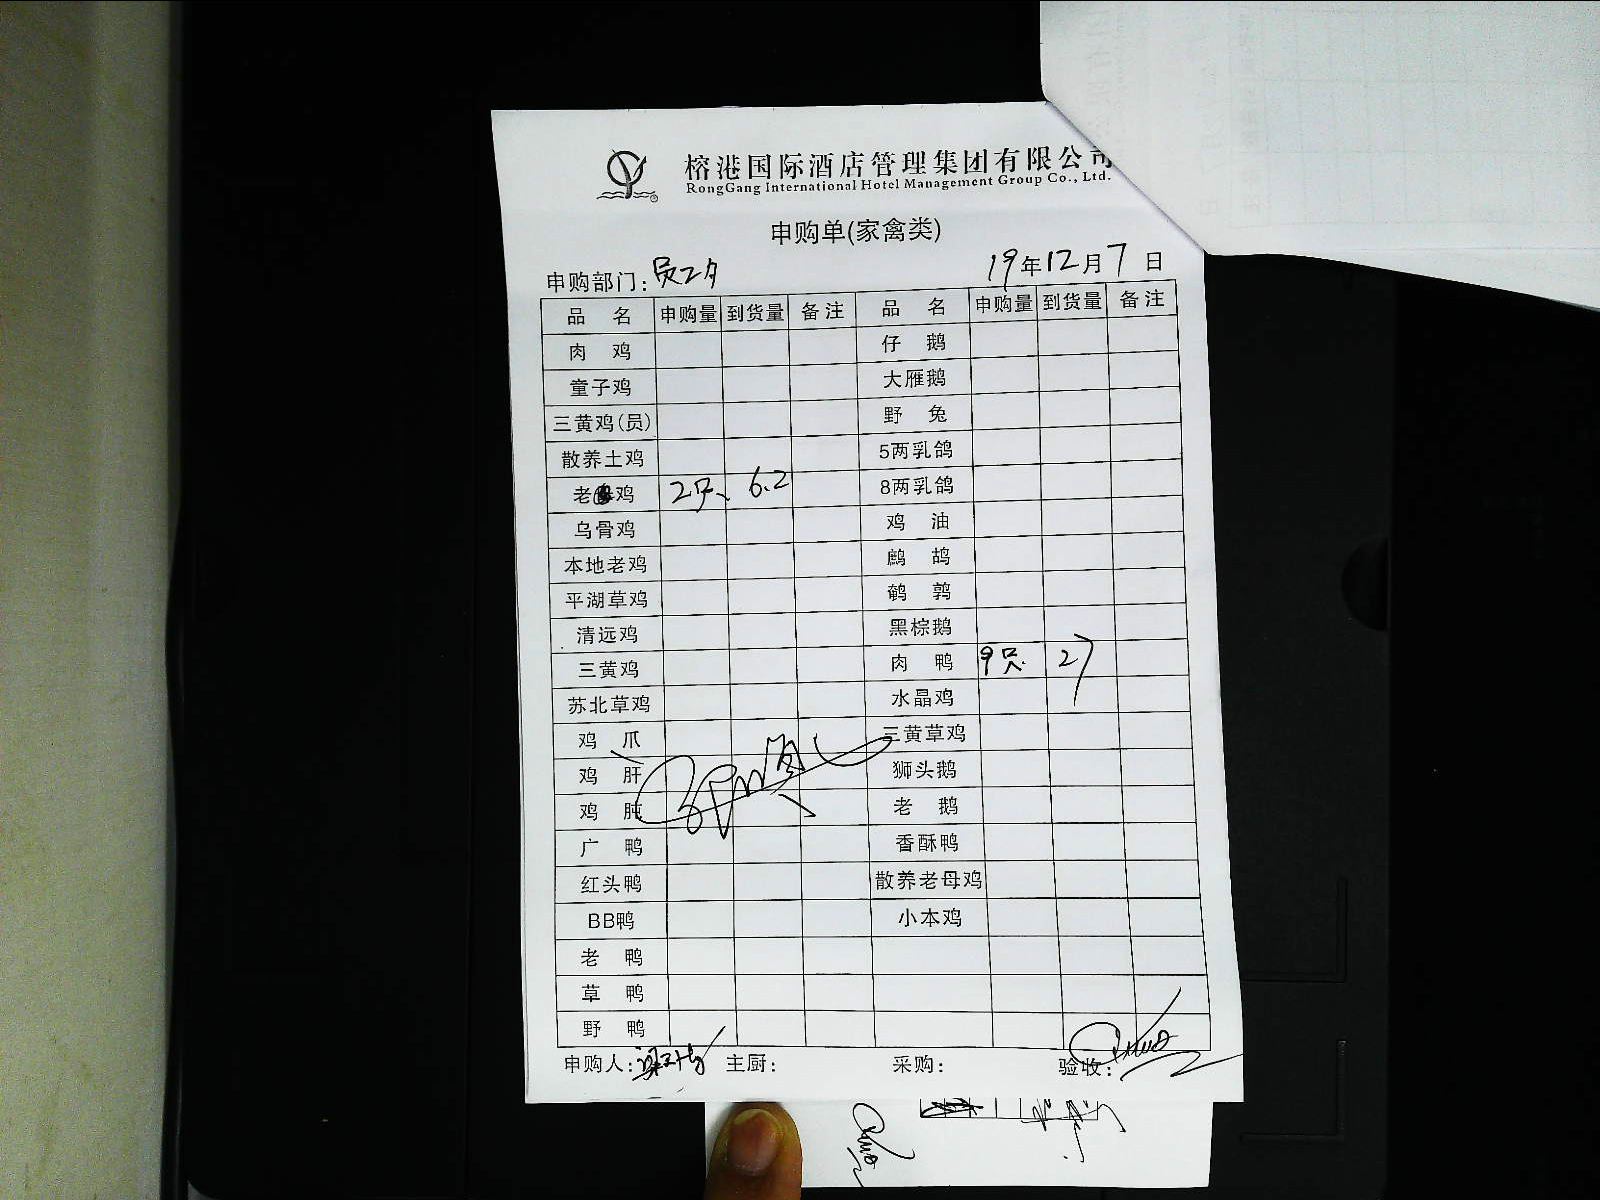 榕港国际酒店管理集团有限公司
RongGang International Hotel Management Group Co., Ltd.
申购单(家禽类)
申购部门: 员工夕 19年12月7日
品 名 申购量 到货量 备注 品 名 申购量 到货量 备注
肉 鸡 仔 鹅
童子鸡 大雁鹅
三黄鸡(员) 野 兔
散养土鸡 5两乳鸽
老鸡 2只 6.2 8两乳鸽
乌骨鸡 鸡 油
本地老鸡 鹧 鸪
平湖草鸡 鹌 鹑
清远鸡 黑棕鹅
三黄鸡 肉 鸭 9只 27
苏北草鸡 水晶鸡
鸡 爪 三黄草鸡
鸡 肝 狮头鹅
鸡 肫 老 鹅
广 鸭 香酥鸭
红头鸭 散养老母鸡
BB鸭 小本鸡
老 鸭
草 鸭
野 鸭
申购人: 主厨: 采购: 验收: